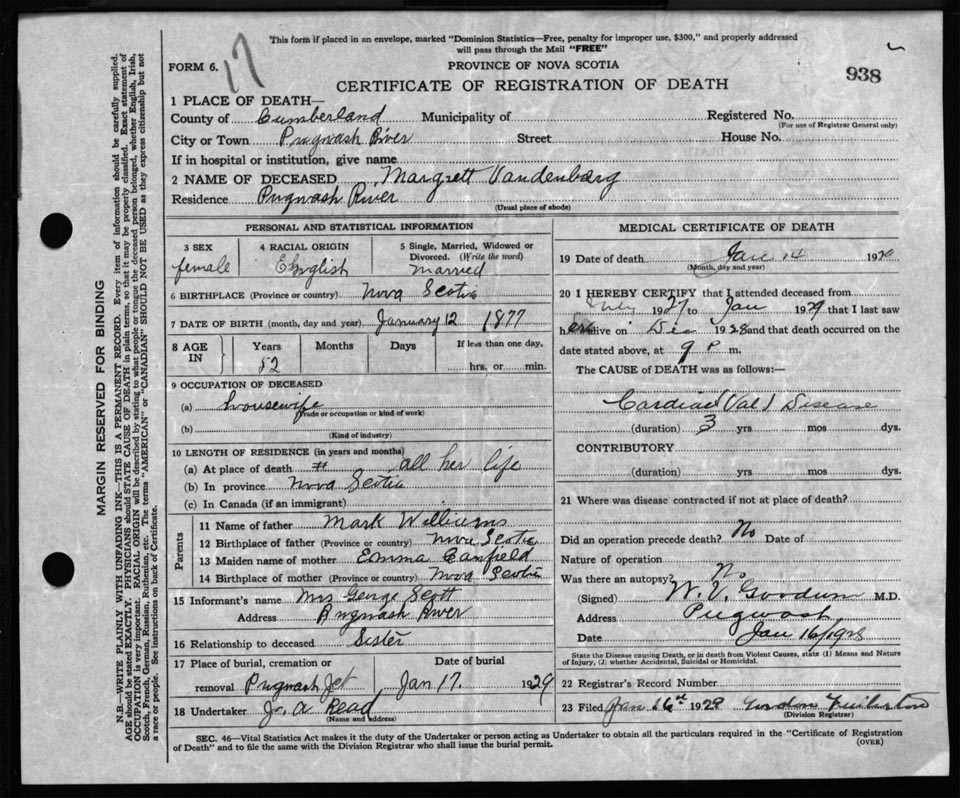 This form if placed in an envelope, marked "Dominion Statistics—Free, penalty for improper use, $300," and properly addressed
will pass through the Mail "FREE"
17
FORM 6.
PROVINCE OF NOVA SCOTIA
938
CERTIFICATE OF REGISTRATION OF DEATH
1 PLACE OF DEATH—
County of Cumberland Municipality of Registered No.
(For use of Registrar General only)
City or Town Pugwash River Street House No.
If in hospital or institution, give name
2 NAME OF DECEASED Margrett Vandenbarg
Residence Pugwash River
(Usual place of abode)
PERSONAL AND STATISTICAL INFORMATION
3 SEX 4 RACIAL ORIGIN 5 Single, Married, Widowed or
Divorced. (Write the word)
female English married
6 BIRTHPLACE (Province or country) Nova Scotia
7 DATE OF BIRTH (month, day and year) January 12 1877
8 AGE IN Years Months Days If less than one day,
52 hrs. or min.
9 OCCUPATION OF DECEASED
(a) housewife
(Trade or occupation or kind of work)
(b)
(Kind of industry)
10 LENGTH OF RESIDENCE (in years and months)
(a) At place of death # all her life
(b) In province Nova Scotia
(c) In Canada (if an immigrant)
Parents
11 Name of father Mark Williams
12 Birthplace of father (Province or country) Nova Scotia
13 Maiden name of mother Emma Canfield
14 Birthplace of mother (Province or country) Nova Scotia
15 Informant's name Mrs George Scott
Address Pugwash River
16 Relationship to deceased Sister
17 Place of burial, cremation or Date of burial
removal Pugwash Jct Jan 17. 1929
18 Undertaker J. a Read
(Name and address)
MEDICAL CERTIFICATE OF DEATH
19 Date of death Jan 14 19
(Month, day and year)
20 I HEREBY CERTIFY that I attended deceased from
July 1927 to Jan 1929 that I last saw
her alive on Dec 1928 and that death occurred on
date stated above, at 9 P. m.
The CAUSE OF DEATH was as follows:—
Cardiac (Val) Disease
(duration) 3 yrs mos dys.
CONTRIBUTORY
(duration) yrs. mos. dys.
21 Where was disease contracted if not at place of death?
Did an operation precede death? No Date of
Nature of operation
Was there an autopsy? No
(Signed) W. V. M.D.
Address Pugwash
Date Jan 16/1928
State the Disease causing Death, or in death from Violent Causes, state (1) Means and Nature
of Injury, (2) whether Accidental, Suicidal or Homicidal.
22 Registrar's Record Number
23 Filed Jan 16th 1929 Gordon
(Division Registrar)
SEC. 46—Vital Statistics Act makes it the duty of the Undertaker or person acting as Undertaker to obtain all the particulars required in the "Certificate of Registration
of Death" and to file the same with the Division Registrar who shall issue the burial permit.
(OVER)
MARGIN RESERVED FOR BINDING
N.B.—WRITE PLAINLY WITH UNFADING INK—THIS IS A PERMANENT RECORD. Every item of information should be carefully supplied.
AGE should be stated EXACTLY. PHYSICIANS should STATE CAUSE OF DEATH in plain terms, so that it may be properly classified. Exact statement of
OCCUPATION is very important. RACIAL ORIGIN will be described by stating to what people or tongue the deceased person belonged, whether English, Irish,
Scotch, French, German, Russian, Ruthenian, etc. The terms "AMERICAN" or "CANADIAN" SHOULD NOT BE USED as they express citizenship but not
a race or people. See instructions on back of Certificate.